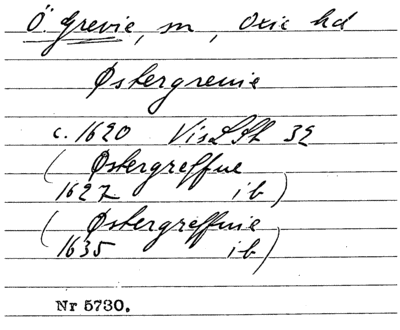 Ö. Grevie, sn, Oxie hd
Østergrenie
c. 1620 VisLSt 32
(Østergreffue
1627 ib)
(Østergreffuie
1635 ib)
Nr 5730.